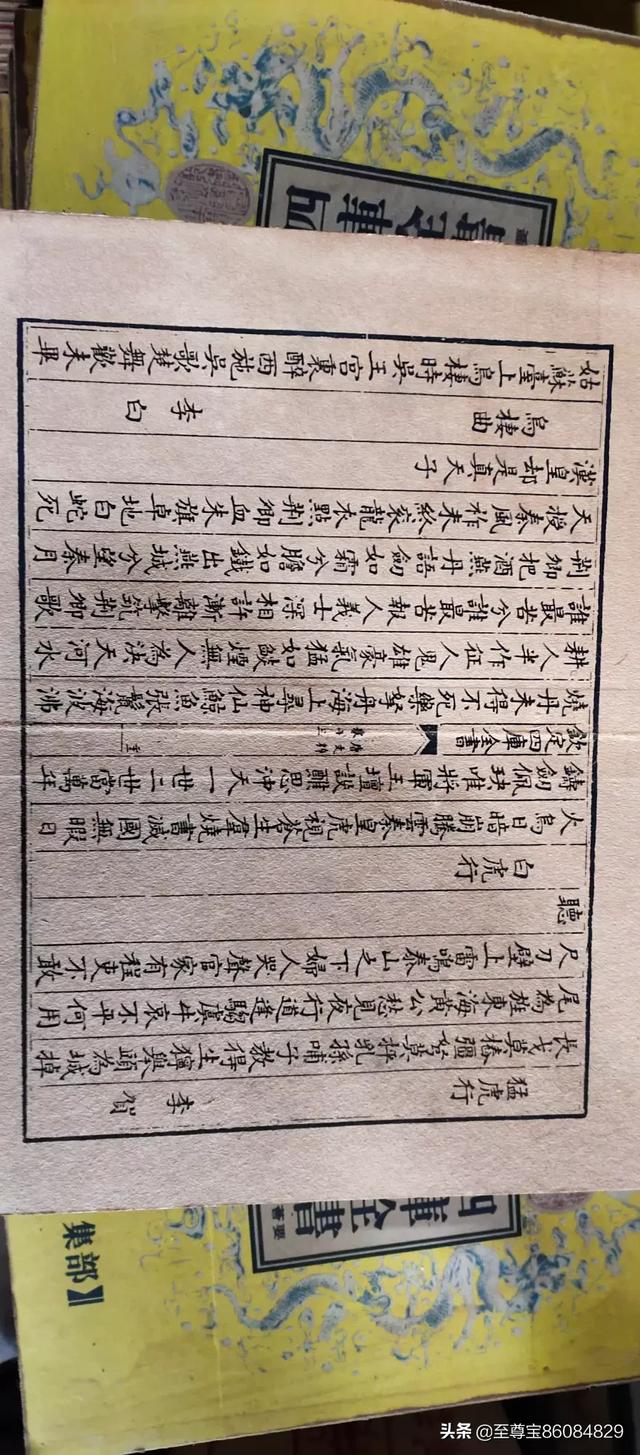 猛虎行
李賀
長戈莫椿彊弩莫抨乳孫哺子教得生獰舉頭為城掉
尾為旌東海黃公愁見夜行道逢騶虞牛哀不平何用
尺刀壁上雷鳴泰山之下婦人哭聲官家有程吏不敢
聽
白虎行
火烏日暗崩騰雲秦皇虎視蒼生羣燒書滅國無暇日
鑄劍佩玦唯將軍玉壇設醮思沖天一世二世當萬年
欽定四庫全書
唐文粹
燒丹未得不死藥拏舟海上尋神仙鯨魚張鬣海波沸
耕人半作征人鬼雄豪氣猛如燄煙無人為決天河水
誰最苦兮誰最苦報人義士深相許漸離擊筑荊卿歌
荊卿把酒燕丹語劒如霜兮膽如鐵出燕城兮望秦月
天授秦風祚未終袞龍衣點荊卿血朱旗卓地白蛇死
漢皇却是真天子
烏棲曲
李白
姑蘇臺上烏棲時吳王宮裏醉西施吳歌楚舞歡未畢
庫全書
薈要
集部】
头条 @至尊宝86084829